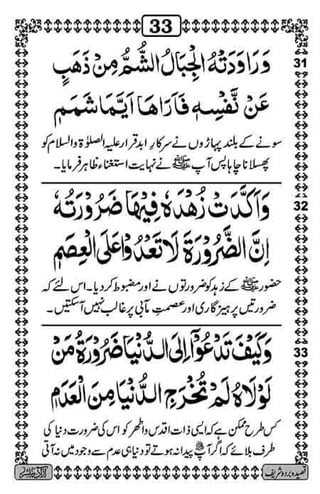 33
31
وَرَاوَدَتْهُ الْجِبَالُ الشُّمُّ مِنْ ذَهَبٍ
عَنْ نَّفْسِهٖ فَاَرَاهَا اَيَّمَا شَمَمٖ
سونے کے بلند پہاڑوں نے سرکارِ ابد قرار علیہ الصلوٰۃ والسلام کو
پھسلانا چاہا پس آپ ﷺ نے نہایت استغناء ظاہر فرمایا۔
32
وَاَكَّدَتْ زُهْدَهٗ فِيْهَا ضَرُوْرَتُهٗ
اِنَّ الضَّرُوْرَةَ لَا تَعْدُوْا عَلَى الْعِصَمِ
حضور ﷺ کے زہد کو ضرورتوں نے اور مضبوط کر دیا۔ اس لئے کہ
ضرورتیں پرہیزگاری اور عصمت مآبی پر غالب نہیں آسکتیں۔
33
وَكَيْفَ تَدْعُوْا اِلَى الدُّنْيَا ضَرُوْرَةُ مَنْ
لَوْلَاهُ لَمْ تُخْرَجِ الدُّنْيَا مِنَ الْعَدَمِ
کس طرح ممکن ہے کہ ایسی ذات اقدس واطہر کو اس کی ضرورت دنیا کی
طرف بلائے کہ اگر آپ ﷺ پیدا نہ ہوتے تو دنیا ہی عدم سے وجود میں نہ آتی
قصیدہ بردہ شریف